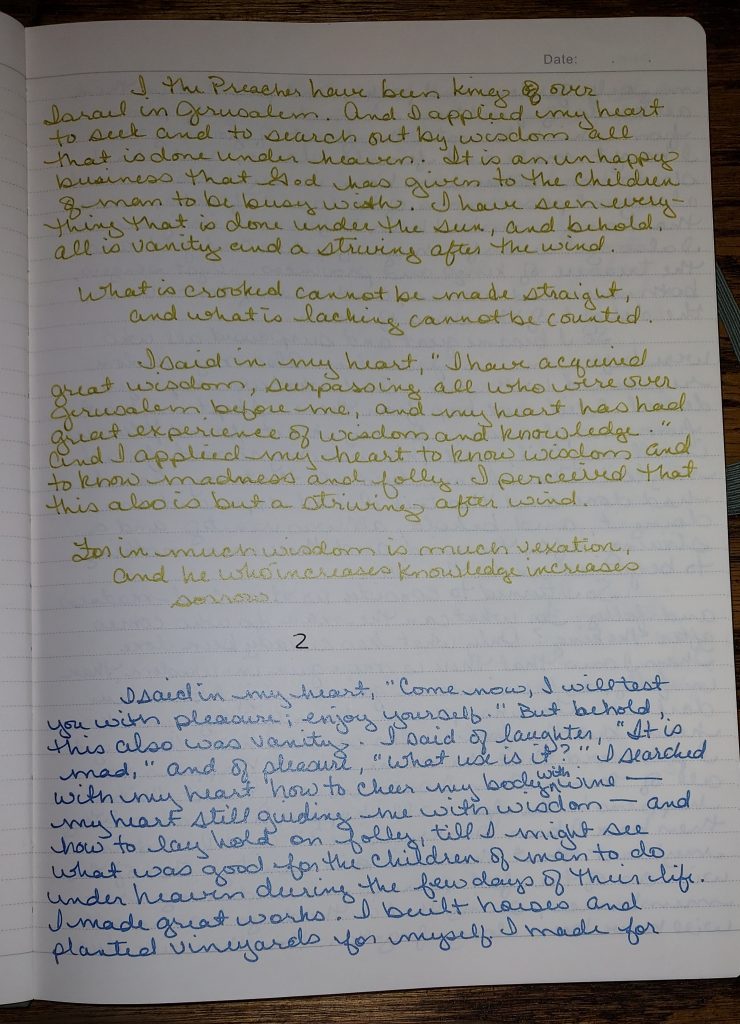 Date:
I the Preacher have been king over
Israel in Jerusalem. And I applied my heart
to seek and to search out by wisdom all
that is done under heaven. It is an unhappy
business that God has given to the children
of man to be busy with. I have seen every-
thing that is done under the sun, and behold,
all is vanity and a striving after the wind.
What is crooked cannot be made straight,
and what is lacking cannot be counted.
I said in my heart, "I have acquired
great wisdom, surpassing all who were over
Jerusalem before me, and my heart has had
great experience of wisdom and knowledge."
And I applied my heart to know wisdom and
to know madness and folly. I perceived that
this also is but a striving after wind.
For in much wisdom is much vexation,
and he who increases knowledge increases
sorrow
2
I said in my heart, "Come now, I will test
you with pleasure; enjoy yourself." But behold,
this also was vanity. I said of laughter, "It is
mad," and of pleasure, "What use is it?" I searched
with my heart how to cheer my body with wine —
my heart still guiding me with wisdom — and
how to lay hold on folly, till I might see
what was good for the children of man to do
under heaven during the few days of their life.
I made great works. I built houses and
planted vineyards for myself. I made for